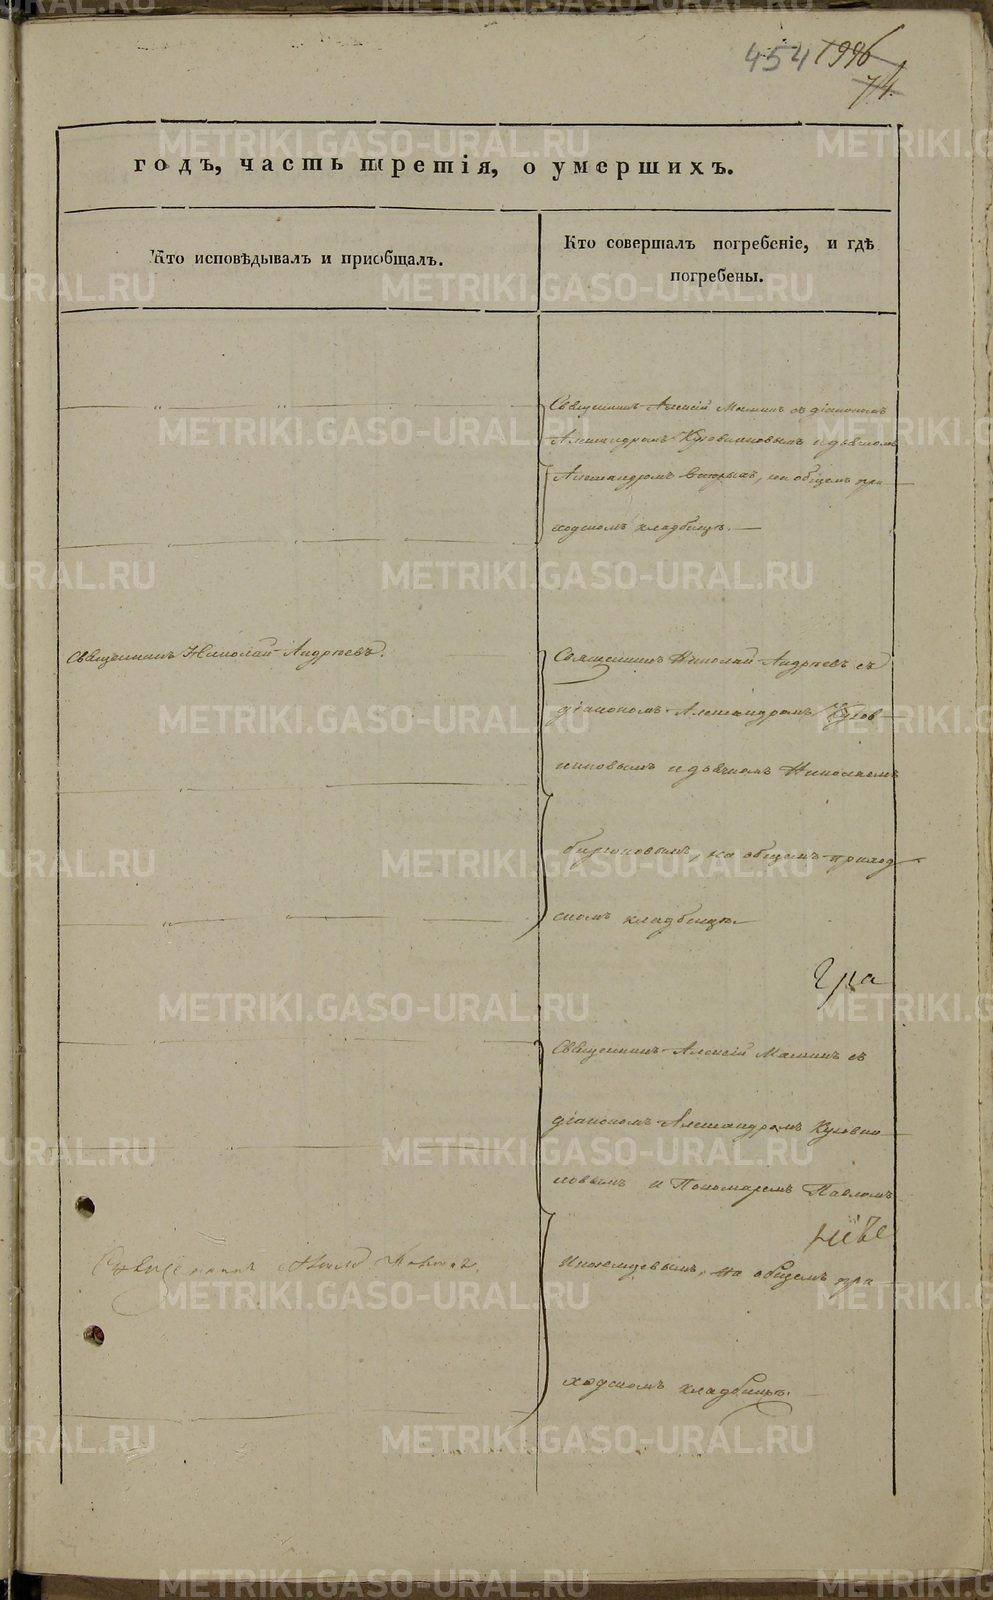 454 1996
74.
годъ, часть третія, о умершихъ.
Кто исповѣдывалъ и пріобщалъ.
Кто совершалъ погребеніе, и гдѣ
погребены.
Священникъ Алексій Маминъ съ діакономъ
Александромъ и дьячкомъ
Александромъ на общемъ при
ходскомъ кладбищѣ.
Священникъ Николай Андреевъ.
Священникъ Николай Андреевъ съ
діакономъ Александромъ
и дьячкомъ Николаемъ
на общемъ приход
скомъ кладбищѣ
Священникъ Алексій Маминъ съ
діакономъ Александромъ
и Пономаремъ Павломъ
Священникъ
Иноземцевымъ, на общемъ при
ходскомъ кладбищѣ.
METRIKI.GASO-URAL.RU